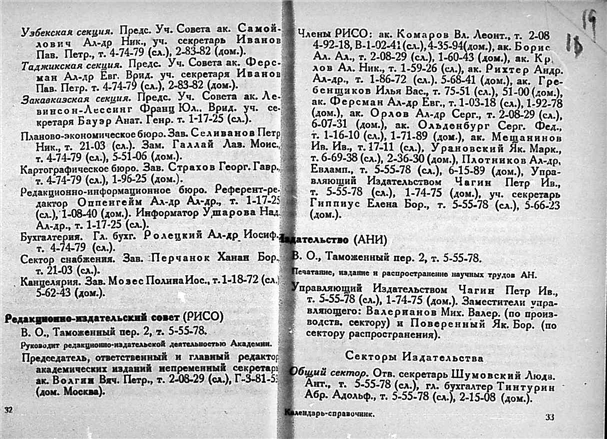 Узбекская секция. Предс. Уч. Совета ак. Самой-
лович Ал-др Ник., уч. секретарь Иванов
Пав. Петр., т. 4-74-79 (сл.), 2-83-82 (дом.).
Таджикская секция. Предс. Уч. Совета ак. Ферс-
ман Ал-др Евг. Врид. уч. секретаря Иванов
Пав. Петр. т. 4-74-79 (сл.), 2-83-82 (дом.).
Закавказская секция. Предс. Уч. Совета ак. Ле-
винсон-Лессинг Франц Юл.. Врид. уч. се-
кретаря Бауэр Анат. Генр. т. 1-17-25 (сл.).
Планово-экономическое бюро. Зав. Селиванов Петр
Ник., т. 21-03 (сл.). Зам. Галлай Лав. Моис.,
т. 4-74-79 (сл.), 5-51-06 (дом.).
Картографическое бюро. Зав. Страхов Георг. Гавр.,
т. 4-74-79 (сл.), 1-96-25 (дом.).
Редакционно-информационное бюро. Референт-ре-
дактор Оппенгейм Ал-др Ал-др., т. 1-17-25
(сл.), 1-08-40 (дом.). Информатор Ушарова Над.
Ал-др., т. 1-17-25 (сл.).
Бухгалтерия. Гл. бухг. Ролецкий Ал-др Иосиф.,
т. 4-74-79 (сл.).
Сектор снабжения. Зав. Перчанок Ханан Бор.,
т. 21-03 (сл.).
Канцелярия. Зав. Мовес Полина Иос., т. 1-18-72 (сл.)
5-62-43 (дом.).
Редакционно-издательский совет (РИСО)
В. О., Таможенный пер. 2, т. 5-55-78.
Руководит редакционно-издательской деятельностью Академии.
Председатель, ответственный и главный редактор
академических изданий непременный секретарь
ак. Волгин Вяч. Петр., т. 2-08-29 (сл.), Г-3-81-
(дом. Москва).
32
19
18
Члены РИСО: ак. Комаров Вл. Леонт., т. 2-08
4-92-18, В-1-02-41 (сл.), 4-35-94 (дом.), ак. Борис
Ал. Ал., т. 2-08-29 (сл.), 1-60-43 (дом.), ак. Кр
лов Ал. Ник., т. 1-59-26 (сл.), ак. Рихтер Андр.
Ал-др., т. 1-86-72 (сл.), 5-68-41 (дом.), ак. Гре-
бенщиков Илья Вас., т. 75-51 (сл.), 51-00 (дом.),
ак. Ферсман Ал-др Евг., т. 1-03-18 (сл.), 1-92-78
(дом.), ак. Орлов Ал-др Серг., т. 2-08-29 (сл.),
6-07-31 (дом.), ак. Ольденбург Серг. Фед.,
т. 1-16-10 (сл.), 1-71-89 (дом.), ак. Мещанинов
Ив. Ив., т. 17-11 (сл.), Урановский Як. Марк.,
т. 6-69-38 (сл.), 2-36-30 (дом.), Плотников Ал-др.
Евламп., т. 5-55-78 (сл.), 6-15-89 (дом.), Упра-
вляющий Издательством Чагин Петр Ив.,
т. 5-55-78 (сл.), 1-74-75 (дом.), уч. секретарь
Гиппиус Елена Бор., т. 5-55-78 (сл.), 5-66-23
(дом.).
Издательство (АНИ)
В. О., Таможенный пер. 2, т. 5-55-78.
Печатание, издание и распространение научных трудов АН.
Управляющий Издательством Чагин Петр Ив.,
т. 5-55-78 (сл.), 1-74-75 (дом.). Заместители упра-
вляющего: Валерианов Мих. Валер. (по произ-
водств. сектору) и Поверенный Як. Бор. (по
сектору распространения).
Секторы Издательства
Общий сектор. Отв. секретарь Шумовский Людв.
Ант., т. 5-55-78 (сл.), гл. бухгалтер Тинтурин
Абр. Адольф., т. 5-55-78 (сл.), 2-15-08 (дом.).
Календарь-справочник.
33